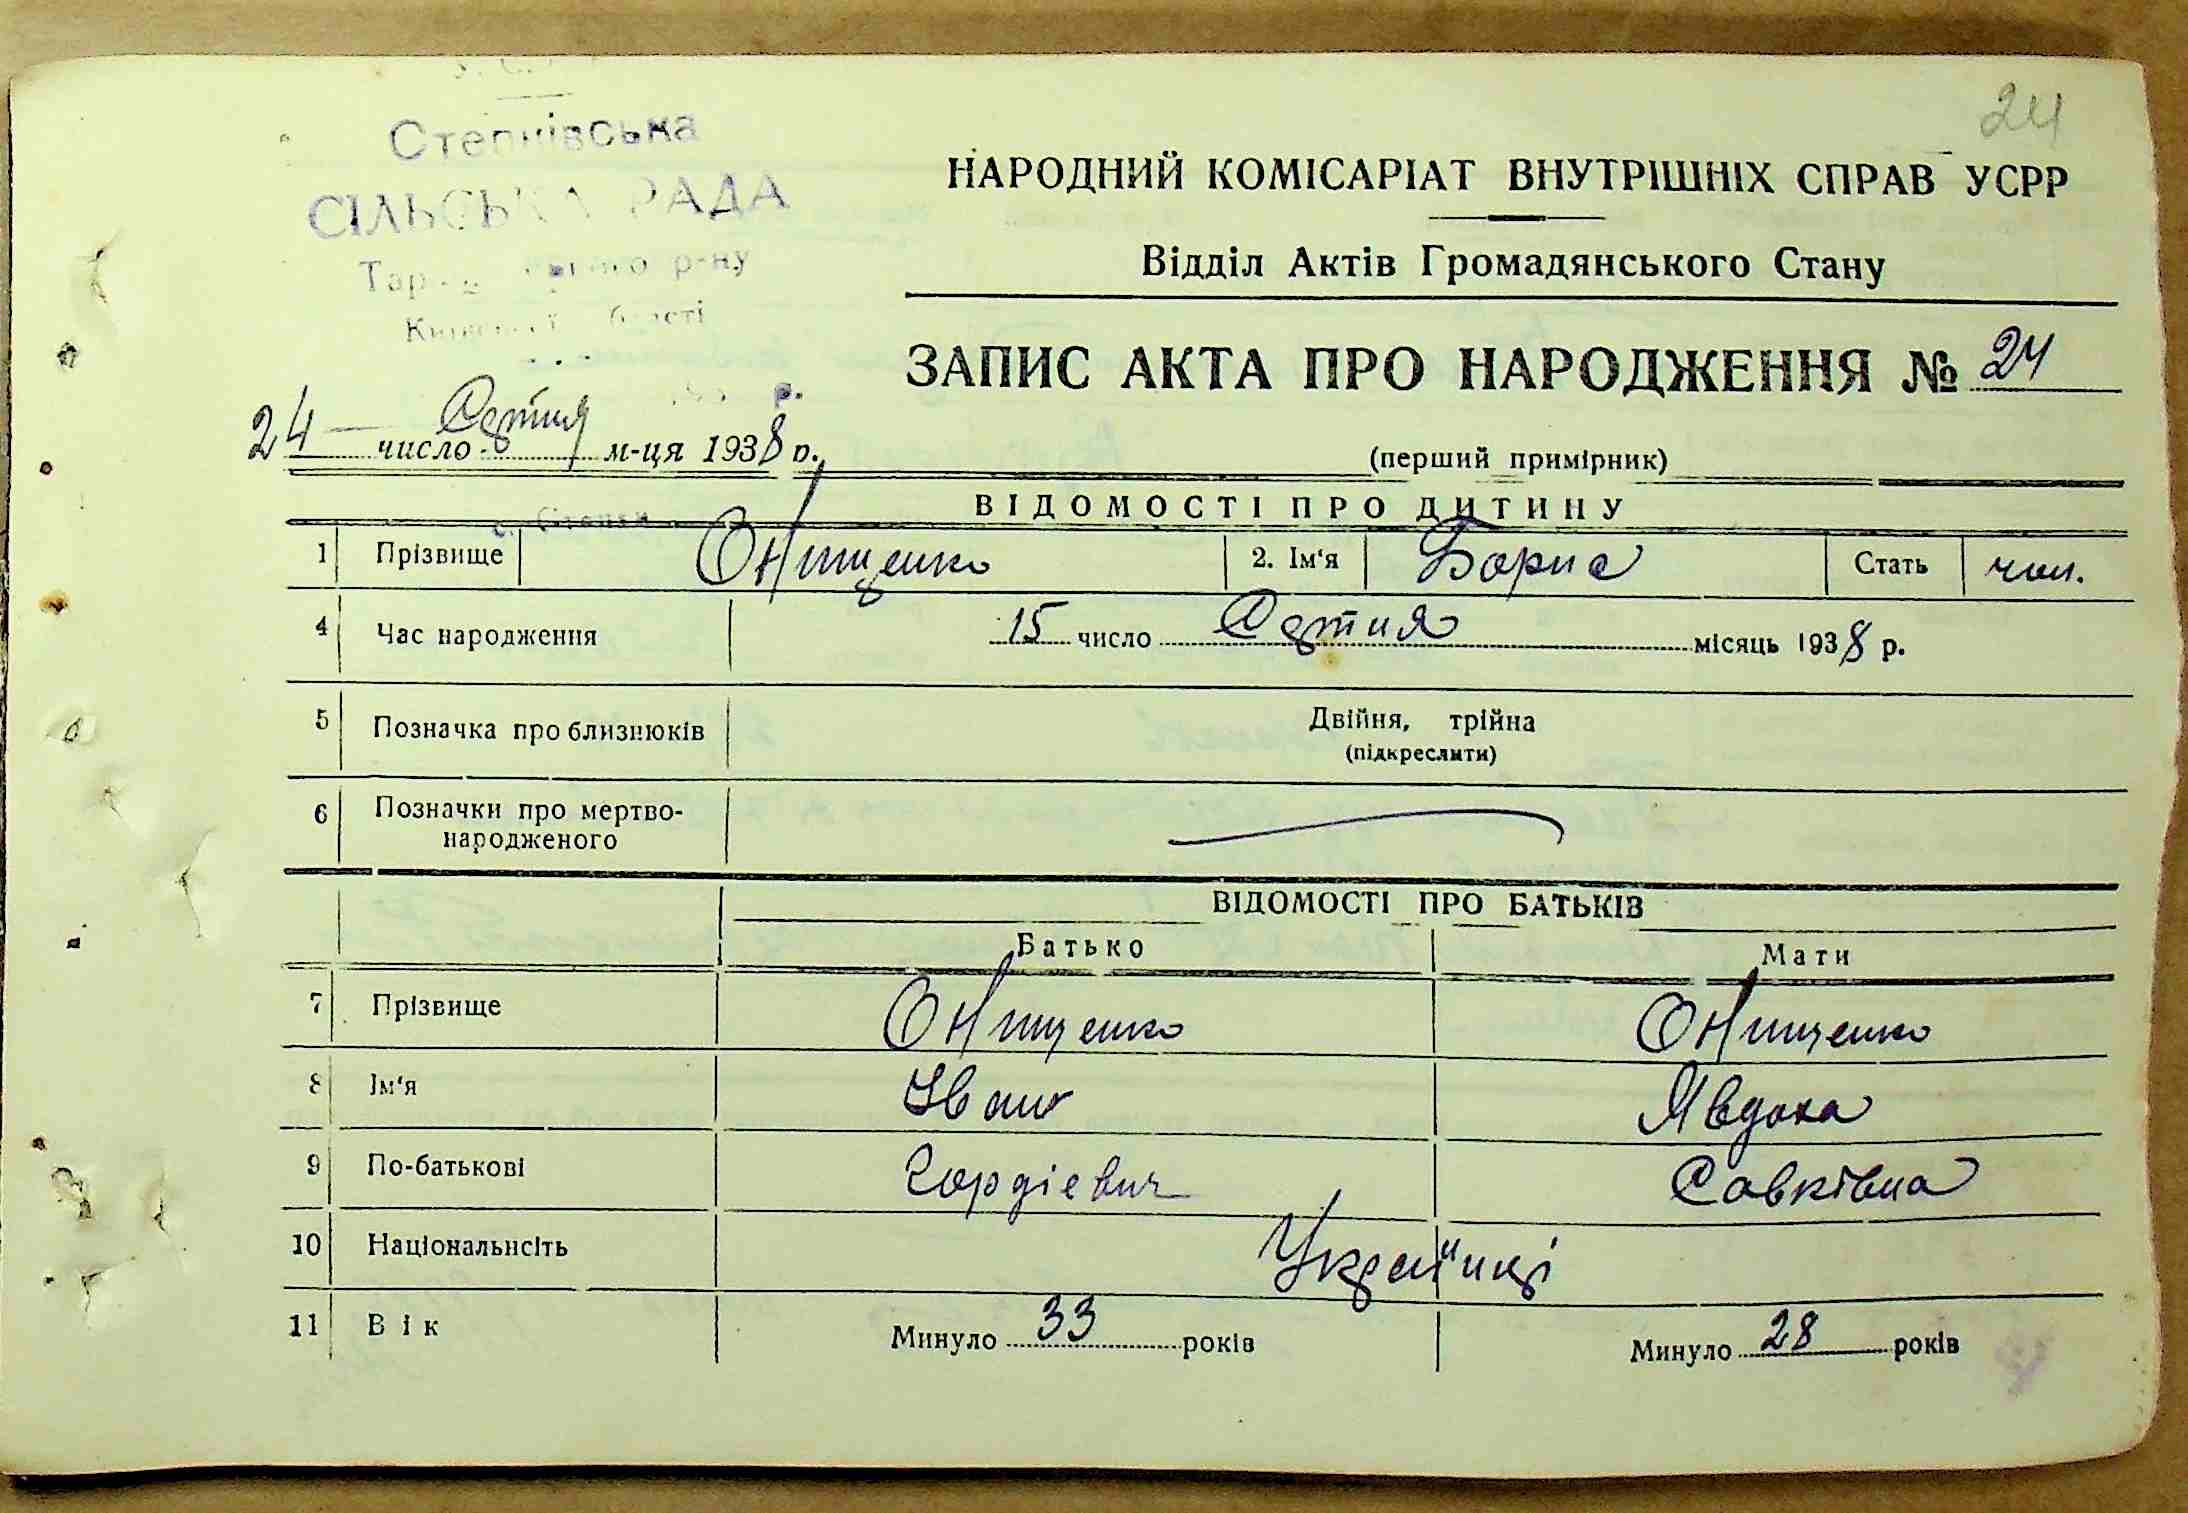 24
Степківська
СІЛЬСЬКА РАДА
р-ну
НАРОДНИЙ КОМІСАРІАТ ВНУТРІШНІХ СПРАВ УСРР
Відділ Актів Громадянського Стану
ЗАПИС АКТА ПРО НАРОДЖЕННЯ № 24
24 число м-ця 1938 р.
(перший примірник)
ВІДОМОСТІ ПРО ДИТИНУ
с. Степки
1 Прізвище Онищенко 2. Ім'я Борис Стать чол.
4 Час народження 15 число місяць 1938 р.
5 Позначка про близнюків Двійня, трійна
(підкреслити)
6 Позначки про мертво-
народженого
ВІДОМОСТІ ПРО БАТЬКІВ
Батько Мати
7 Прізвище Онищенко Онищенко
8 Ім'я Іван Явдоха
9 По-батькові Гордієвич Савківна
10 Національнсіть Українці
11 Вік Минуло 33 років Минуло 28 років